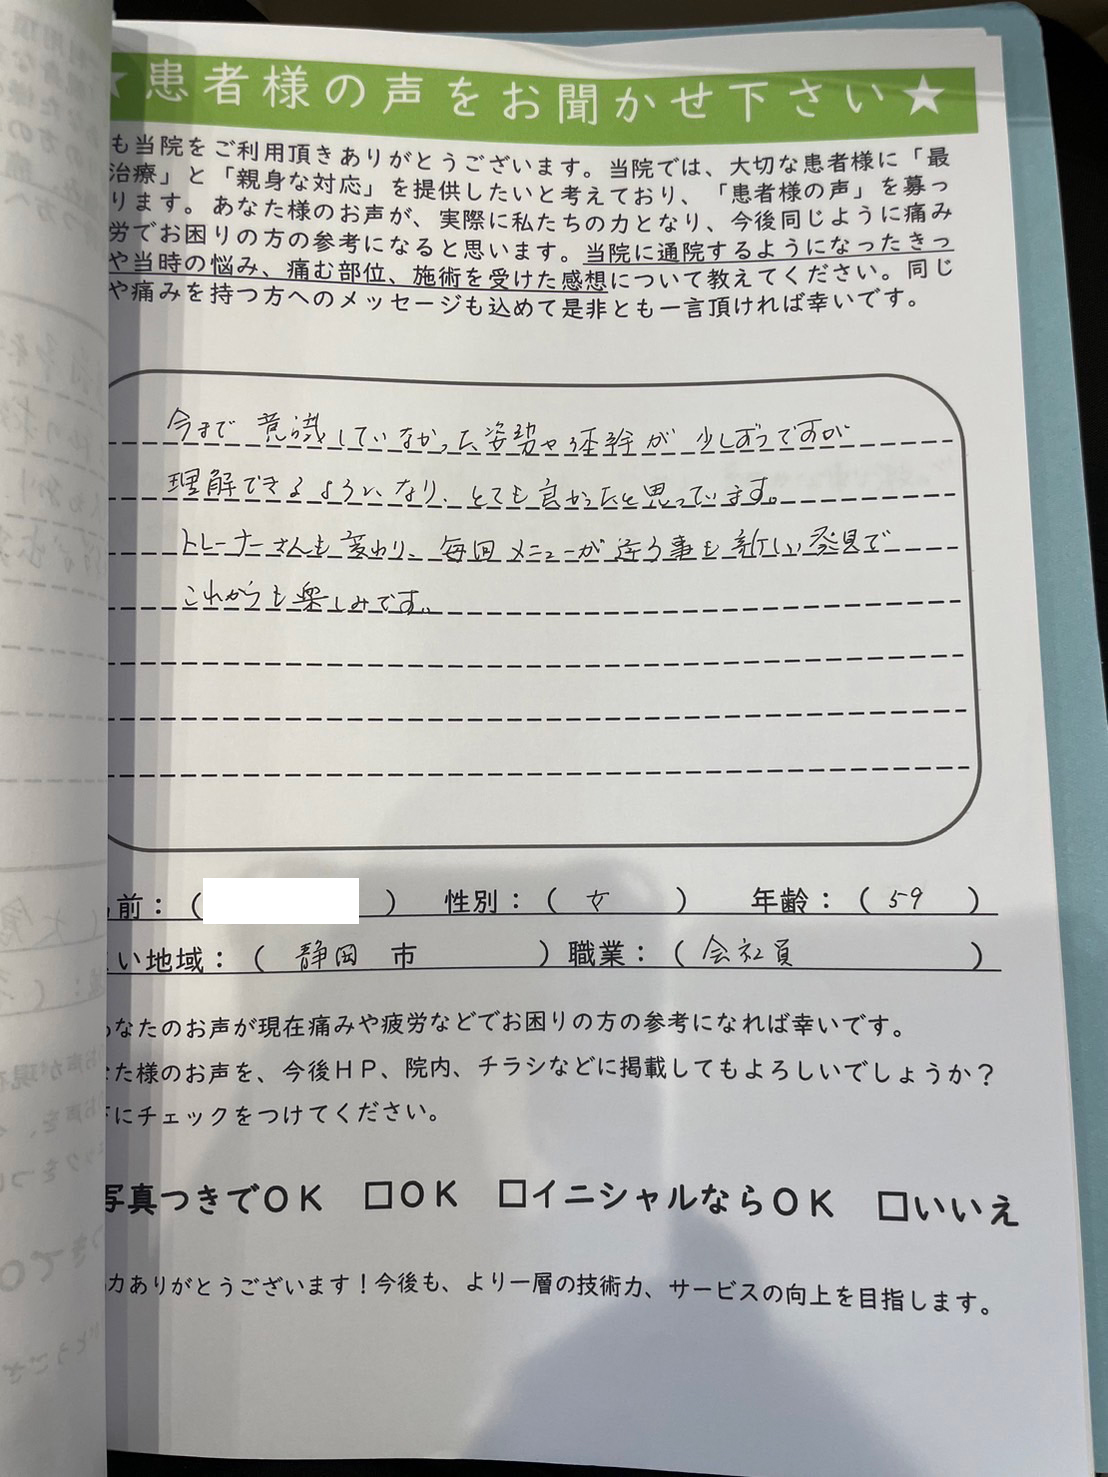 ★患者様の声をお聞かせ下さい★
も当院をご利用頂きありがとうございます。当院では、大切な患者様に「最
治療」と「親身な対応」を提供したいと考えており、「患者様の声」を募っ
ります。あなた様のお声が、実際に私たちの力となり、今後同じように痛み
労でお困りの方の参考になると思います。当院に通院するようになったきっ
や当時の悩み、痛む部位、施術を受けた感想について教えてください。同じ
や痛みを持つ方へのメッセージも込めて是非とも一言頂ければ幸いです。
今まで意識していなかった姿勢や体幹が少しずつですが
理解できるようになり、とても良かったと思っています。
トレーナーさんも変わり、毎回メニューが違う事も新しい発見で
これからも楽しみです。
前：（　　　）　性別：（ 女 ）　年齢：（ 59 ）
い地域：（ 静岡 市 ）職業：（ 会社員 ）
なたのお声が現在痛みや疲労などでお困りの方の参考になれば幸いです。
た様のお声を、今後ＨＰ、院内、チラシなどに掲載してもよろしいでしょうか？
にチェックをつけてください。
写真つきでＯＫ　□ＯＫ　□イニシャルならＯＫ　□いいえ
力ありがとうございます！今後も、より一層の技術力、サービスの向上を目指します。